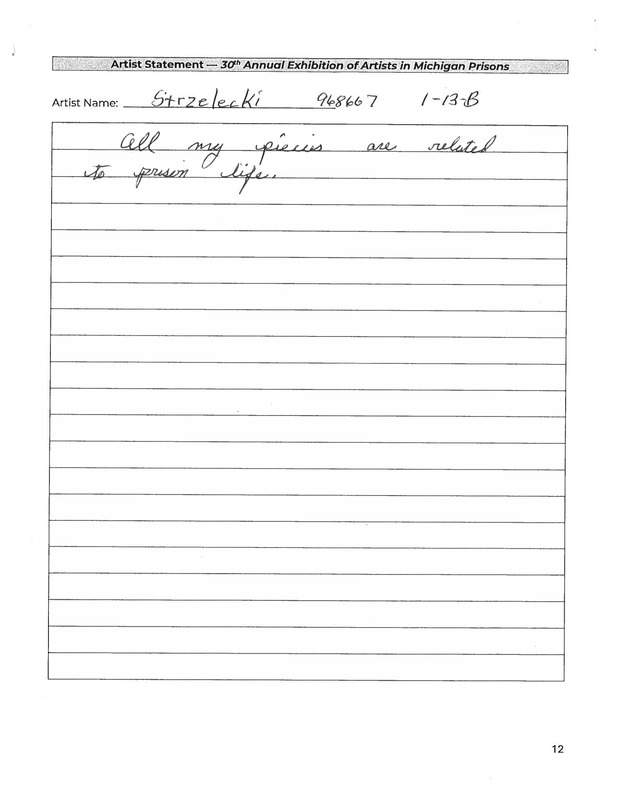 Artist Statement — 30th Annual Exhibition of Artists in Michigan Prisons
Artist Name: Strzelecki 968667 1-13-B
All my pieces are related
to prison life.
12